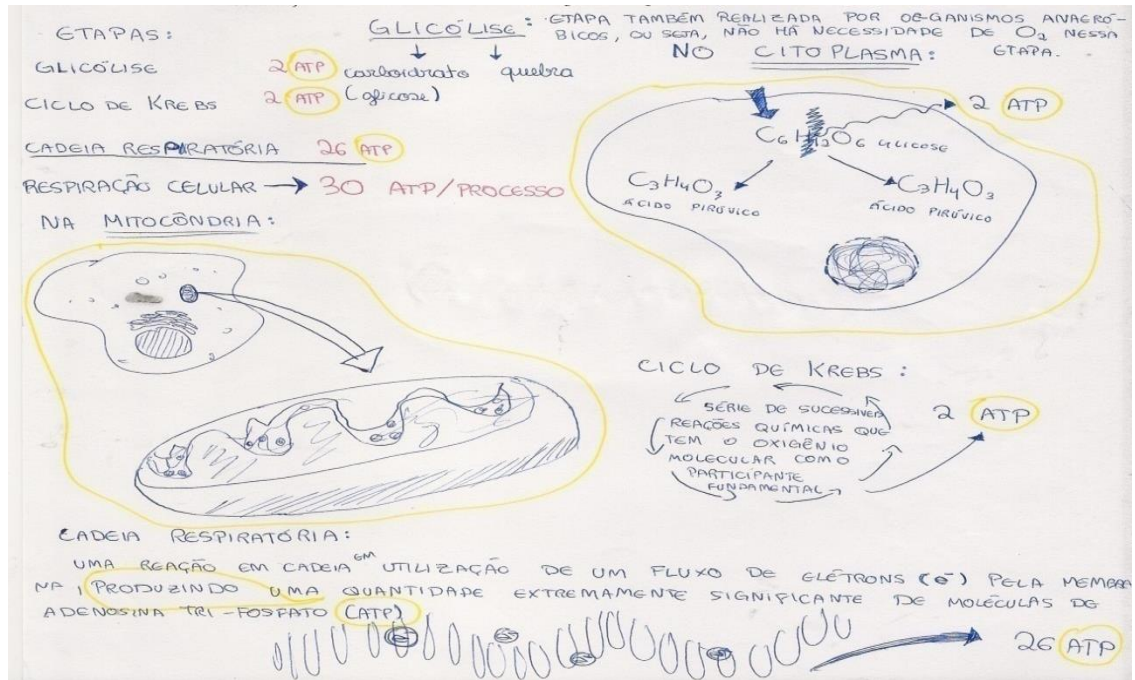 ETAPAS:
GLICÓLISE 2 ATP
CICLO DE KREBS 2 ATP
CADEIA RESPIRATÓRIA 26 ATP
RESPIRAÇÃO CELULAR → 30 ATP/PROCESSO
GLICÓLISE: ETAPA TAMBÉM REALIZADA POR ORGANISMOS ANAERÓ-
BICOS, OU SEJA, NÃO HÁ NECESSIDADE DE O2 NESSA
ETAPA.
carboidrato quebra
(glicose)
NO CITOPLASMA:
2 ATP
C6H12O6 GLICOSE
C3H4O3 C3H4O3
ÁCIDO PIRÚVICO ÁCIDO PIRÚVICO
NA MITOCÔNDRIA:
CICLO DE KREBS:
SÉRIE DE SUCESSIVAS
REAÇÕES QUÍMICAS QUE
TEM O OXIGÊNIO
MOLECULAR COMO
PARTICIPANTE
FUNDAMENTAL
2 ATP
CADEIA RESPIRATÓRIA:
UMA REAÇÃO EM CADEIA EM UTILIZAÇÃO DE UM FLUXO DE ELÉTRONS (e-) PELA MEMBRA
NA, PRODUZINDO UMA QUANTIDADE EXTREMAMENTE SIGNIFICANTE DE MOLÉCULAS DE
ADENOSINA TRI-FOSFATO (ATP)
26 ATP